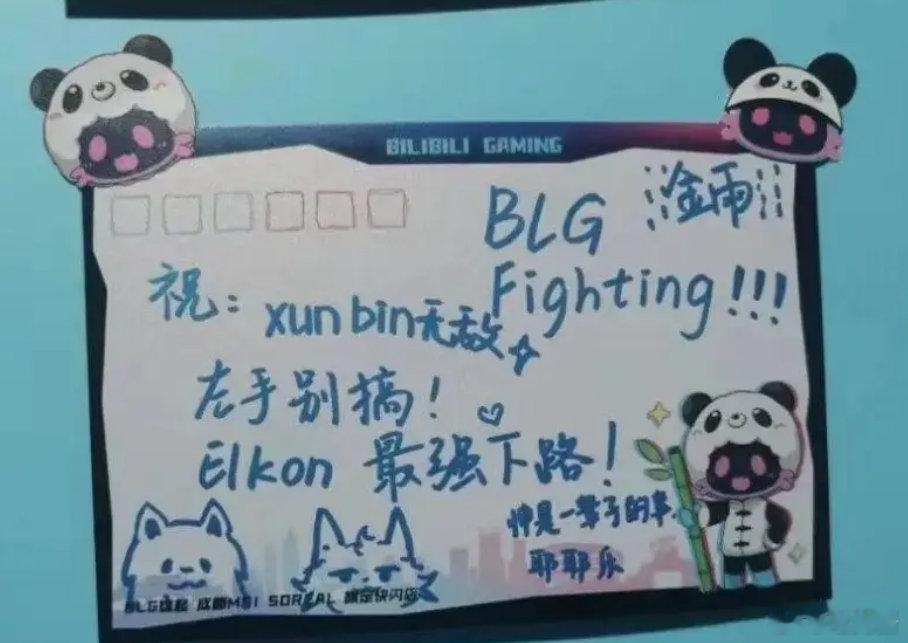 BILIBILI GAMING
BLG 金雨
Fighting!!!
祝:
xun bin无敌
左手别搞!
Elkon 最强下路!
帅是一辈子的事
耶耶乐
成都MSI SOREAL 快闪店